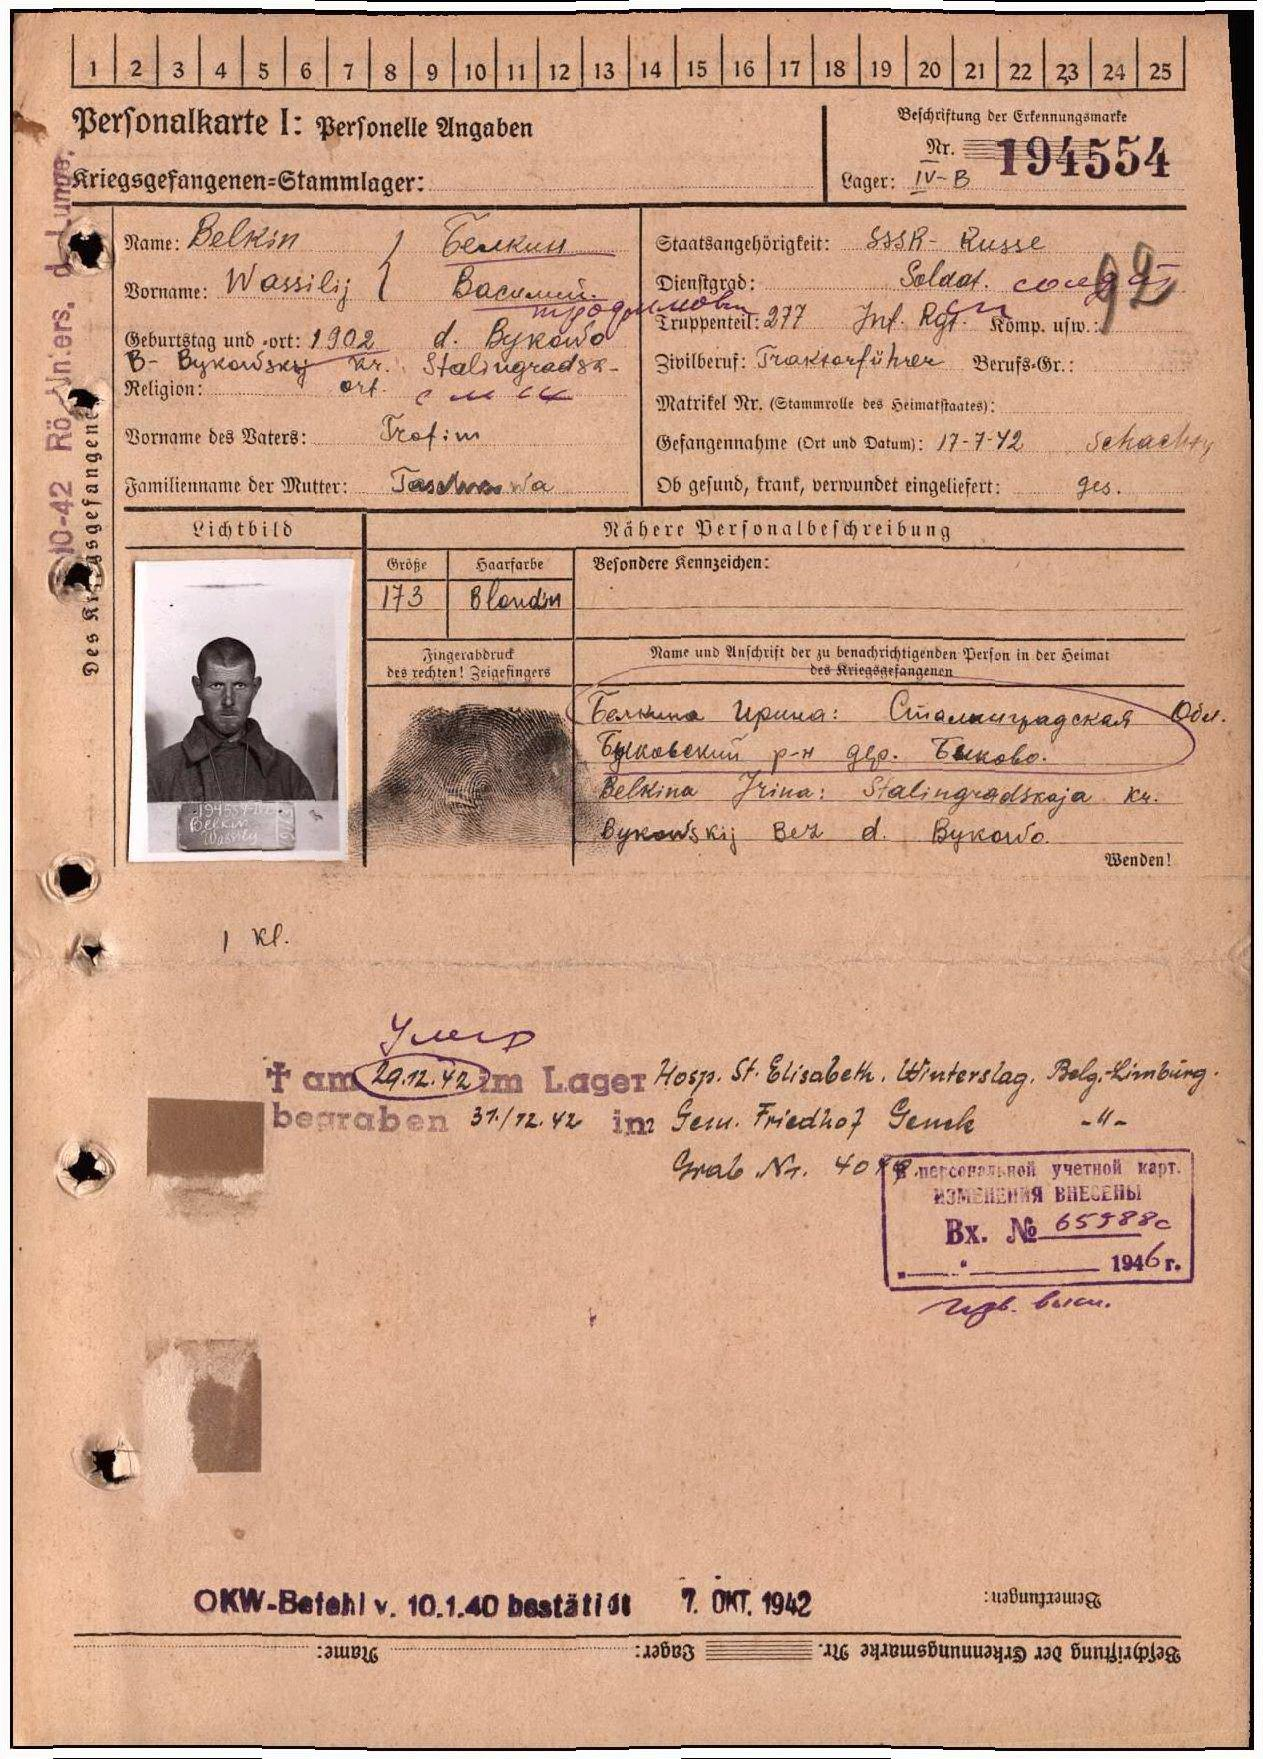 1 2 3 4 5 6 7 8 9 10 11 12 13 14 15 16 17 18 19 20 21 22 23 24 25
Personalkarte I: Personelle Angaben
Beschriftung der Erkennungsmarke
Nr. 194554
Kriegsgefangenen=Stammlager:
Lager: IV-B
Name: Belkin Белкин
Vorname: Wassilij Василий
Geburtstag und -ort: 1902 d. Bykowo
B- Bykowskij kr. Stalingradsk-
Religion: ort.
Vorname des Vaters: Trofim
Familienname der Mutter:
Staatsangehörigkeit: SSSR- Russe
Dienstgrad: Soldat. солдат
92
Truppenteil: 277 Inf. Rgt. Komp. usw.:
Zivilberuf: Traktorführer Berufs-Gr.:
Matrikel Nr. (Stammrolle des Heimatstaates):
Gefangennahme (Ort und Datum): 17-7-42 Schachty
Ob gesund, krank, verwundet eingeliefert: ges.
Des Kriegsgefangenen
10-42 Rö. d. Lunge.
Lichtbild
Nähere Personalbeschreibung
Größe Haarfarbe Besondere Kennzeichen:
173 Blondin
Fingerabdruck
des rechten! Zeigefingers
Name und Anschrift der zu benachrichtigenden Person in der Heimat
des Kriegsgefangenen
Белкина Ирина: Сталинградская Обл.
Быковский р-н дер. Быково.
Belkina Irina: Stalingradskaja kr.
Bykowskij Bez d. Bykowo.
194554
Belkin
Wassilij
Wenden!
1 Kl.
Умер
✝ am 29.12.42 im Lager Hosp. St. Elisabeth. Winterslag. Belg.-Limburg.
begraben 31./12.42 in Gem. Friedhof Genck -"-
Grab Nr.
В персональной учетной карт.
ИЗМЕНЕНИЯ ВНЕСЕНЫ
Вх. № 65988с
1946 г.
OKW-Befehl v. 10.1.40 bestätigt 7. OKT. 1942
Bemerkungen:
Beschriftung der Erkennungsmarke Nr. Lager: Name: